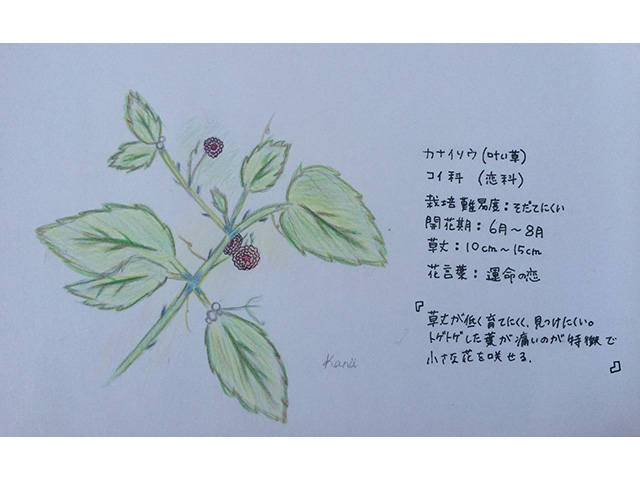 カナイソウ(叶い草)
コイ科 (恋科)
栽培難易度:そだてにくい
開花期:6月〜8月
草丈:10cm〜15cm
花言葉:運命の恋
『草丈が低く育てにくく、見つけにくい。
トゲトゲした葉が痛いのが特徴で
小さな花を咲せる。』
Kanä